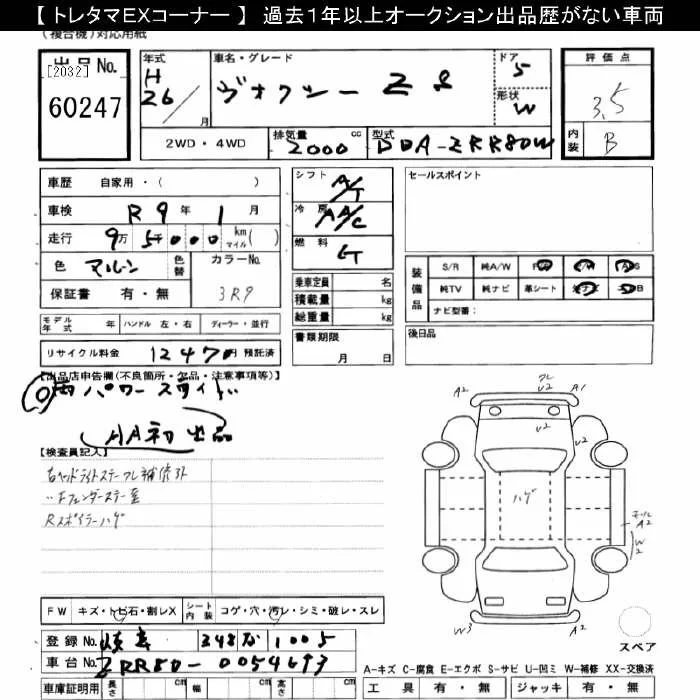 【 トレタマEXコーナー 】 過去1年以上オークション出品歴がない車両
(複合機)対応用紙
出品No.
[2032]
60247
年式 H 26／ 月
車名・グレード ヴォクシー ZS
ドア 5
形状 W
評価点 3.5
内装 B
2WD・4WD
排気量 2000 cc
型式 DBA-ZRR80W
車歴 自家用・( )
車検 R9年 1月
走行 9万5千000 km マイル( )
色 マルーン
色替
カラーNo. 3R9
保証書 有・無
シフト A/T
冷房 AAC
燃料 G
乗車定員 名
積載量 kg
総重量 kg
書類期限
月 日
セールスポイント
装備品
S/R 純A/W
純TV 純ナビ 革シート
ナビ型番:
後日品
モデル年式 年 ハンドル 左・右 ディーラー・並行
リサイクル料金 12470円 預託済
【出品店申告欄(不良箇所・欠品・注意事項等)】
両パワースライド
AA初出品
【検査員記入】
右ヘッドライトステークレ補修外
Rスポイラーハゲ
FW キズ・トビ石・割レX
シート内装 コゲ・穴・汚レ・シミ・破レ・スレ
登録No. 348 1005
車台No. ZRR80-0054693
車庫証明用 長さ cm 幅 cm 高さ cm
A2 クレ U2 A1
U2 U2
ハゲ
モール A2
W2
W3 A2
スペア
A-キズ C-腐食 E-エクボ S-サビ U-凹ミ W-補修 XX-交換済
工具 有・無 ジャッキ 有・無